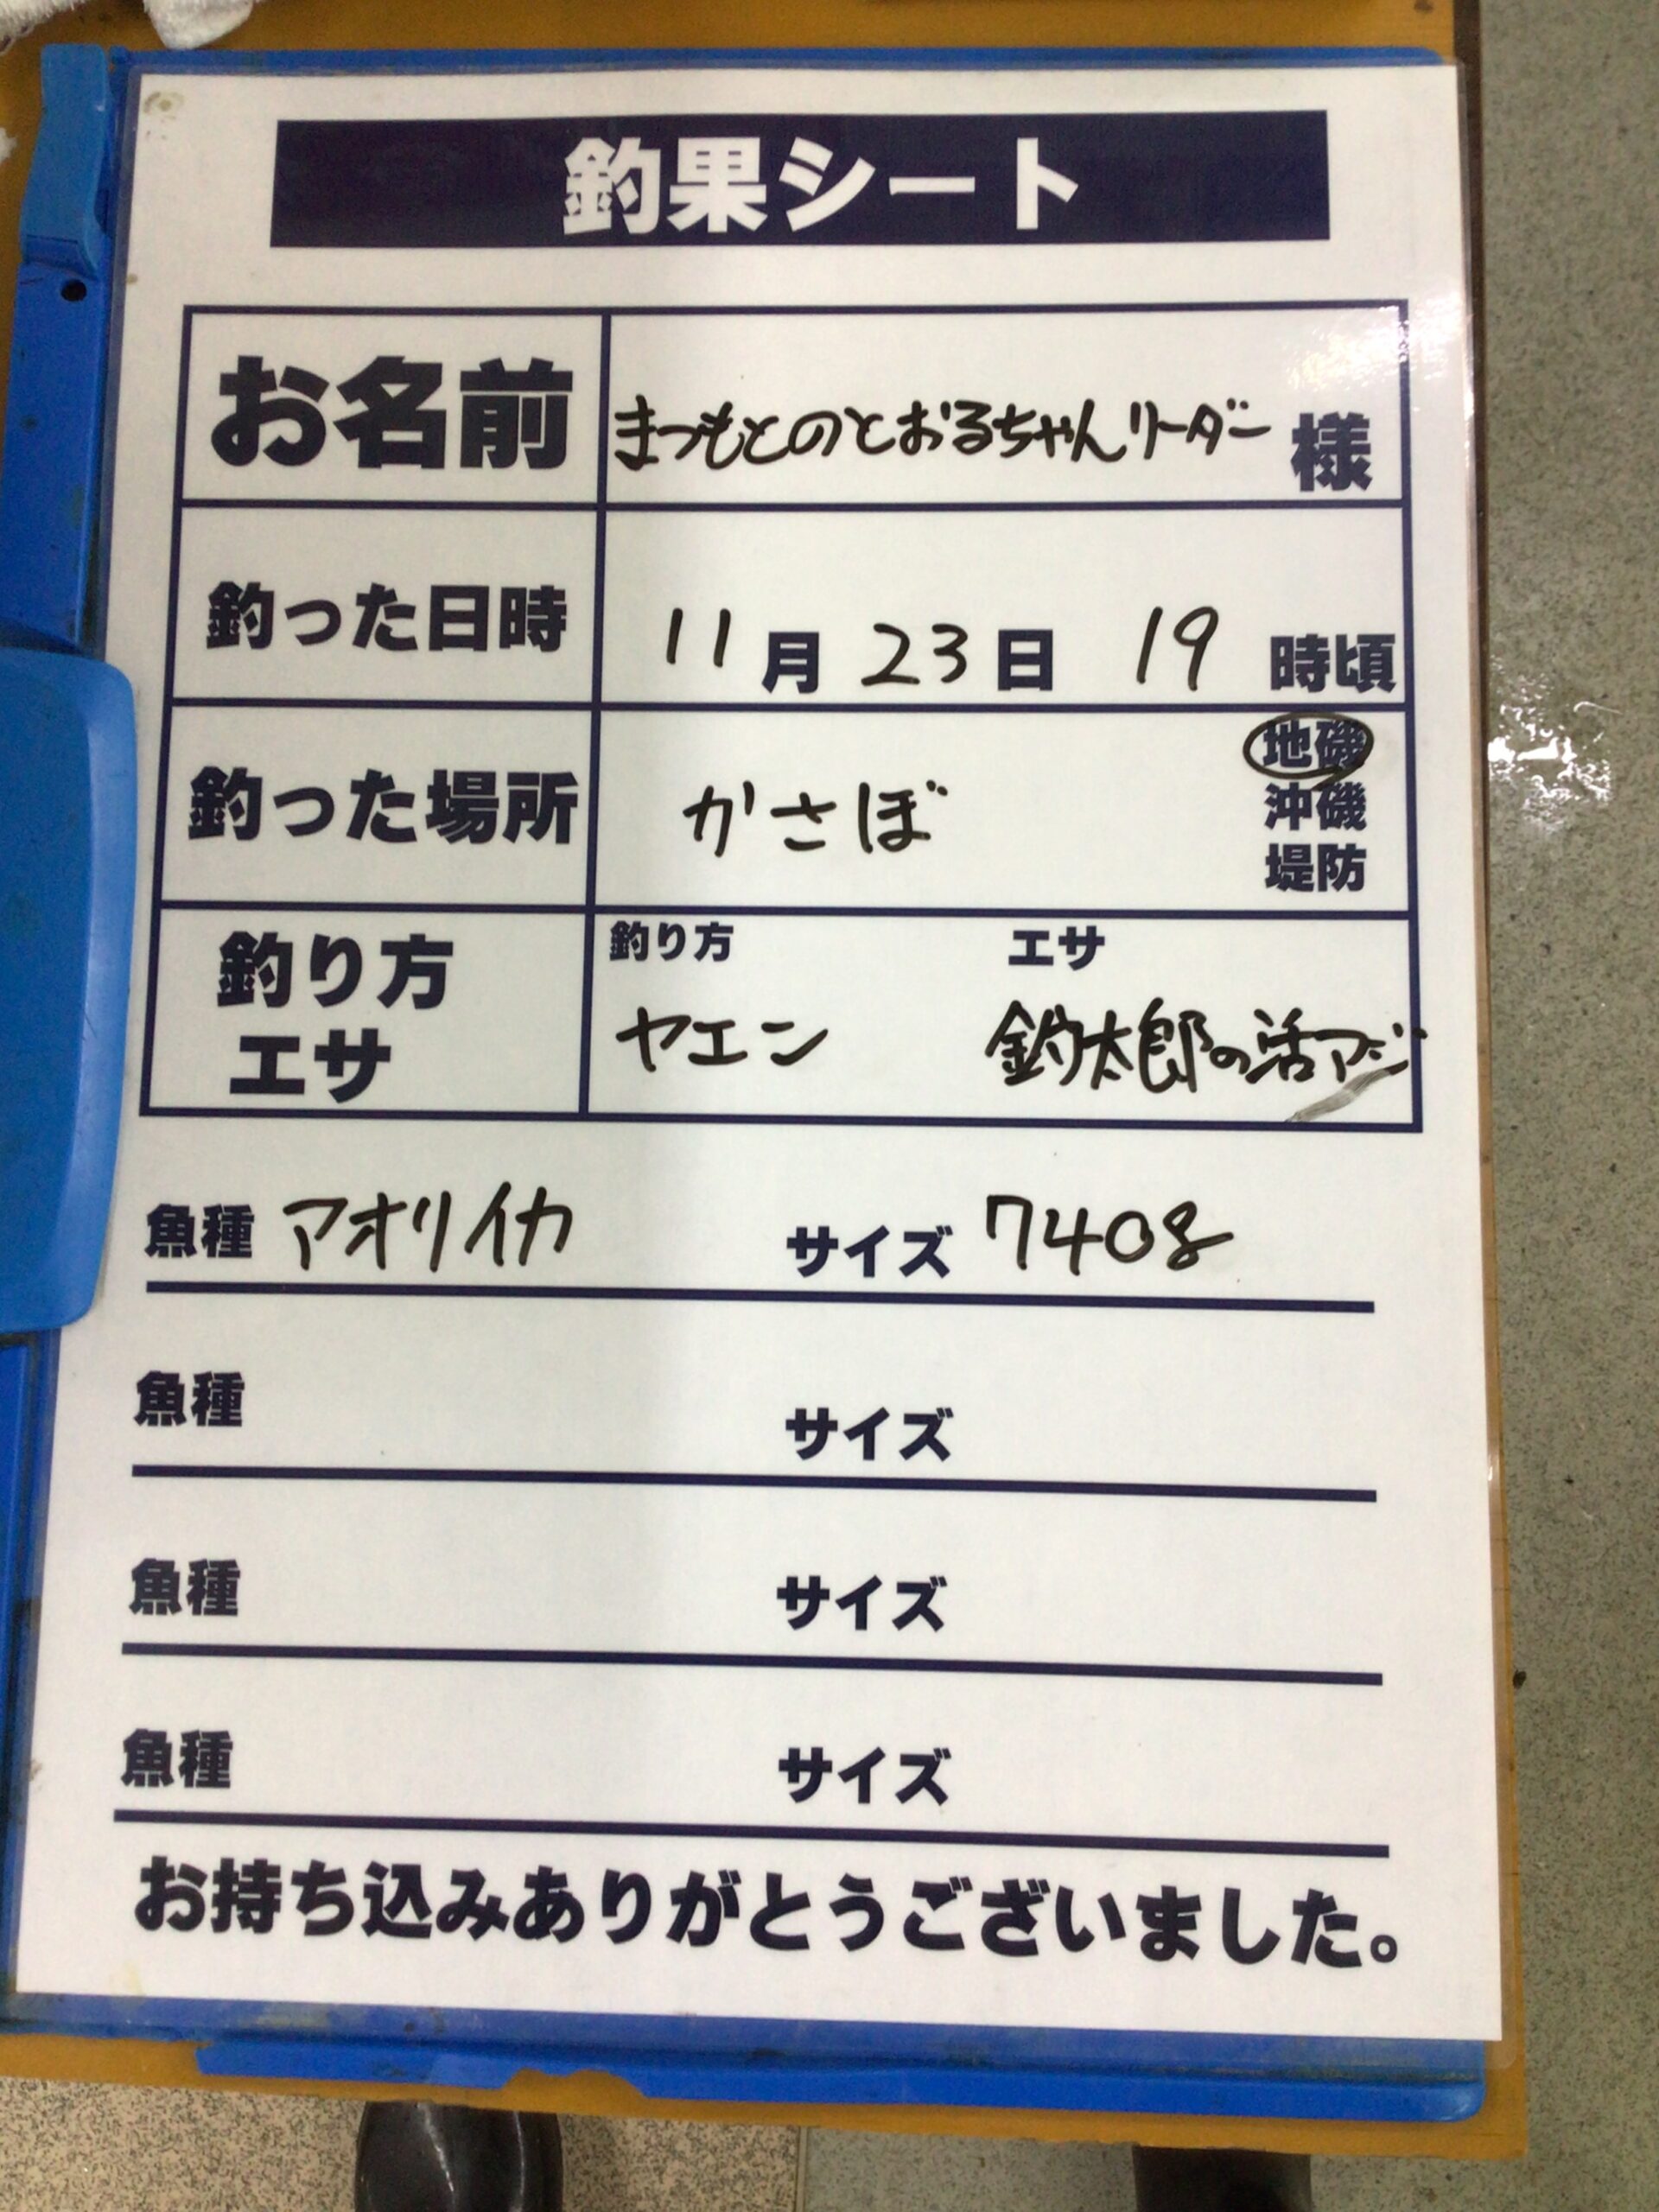 釣果シート
お名前 まつもとのとおるちゃんリーダー 様
釣った日時 11月 23日 19時頃
釣った場所 かさぼ 地磯
沖磯
堤防
釣り方 エサ
釣り方 ヤエン 釣太郎の活アジ
エサ
魚種 アオリイカ サイズ 740g
魚種 サイズ
魚種 サイズ
魚種 サイズ
お持ち込みありがとうございました。